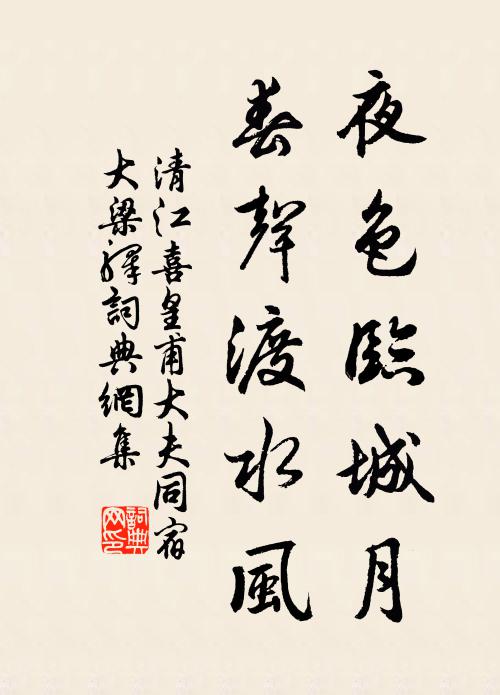 夜色臨城月
春聲渡水風
清江喜皇甫大夫同宿
大梁驛詞典網集
詞典
网印